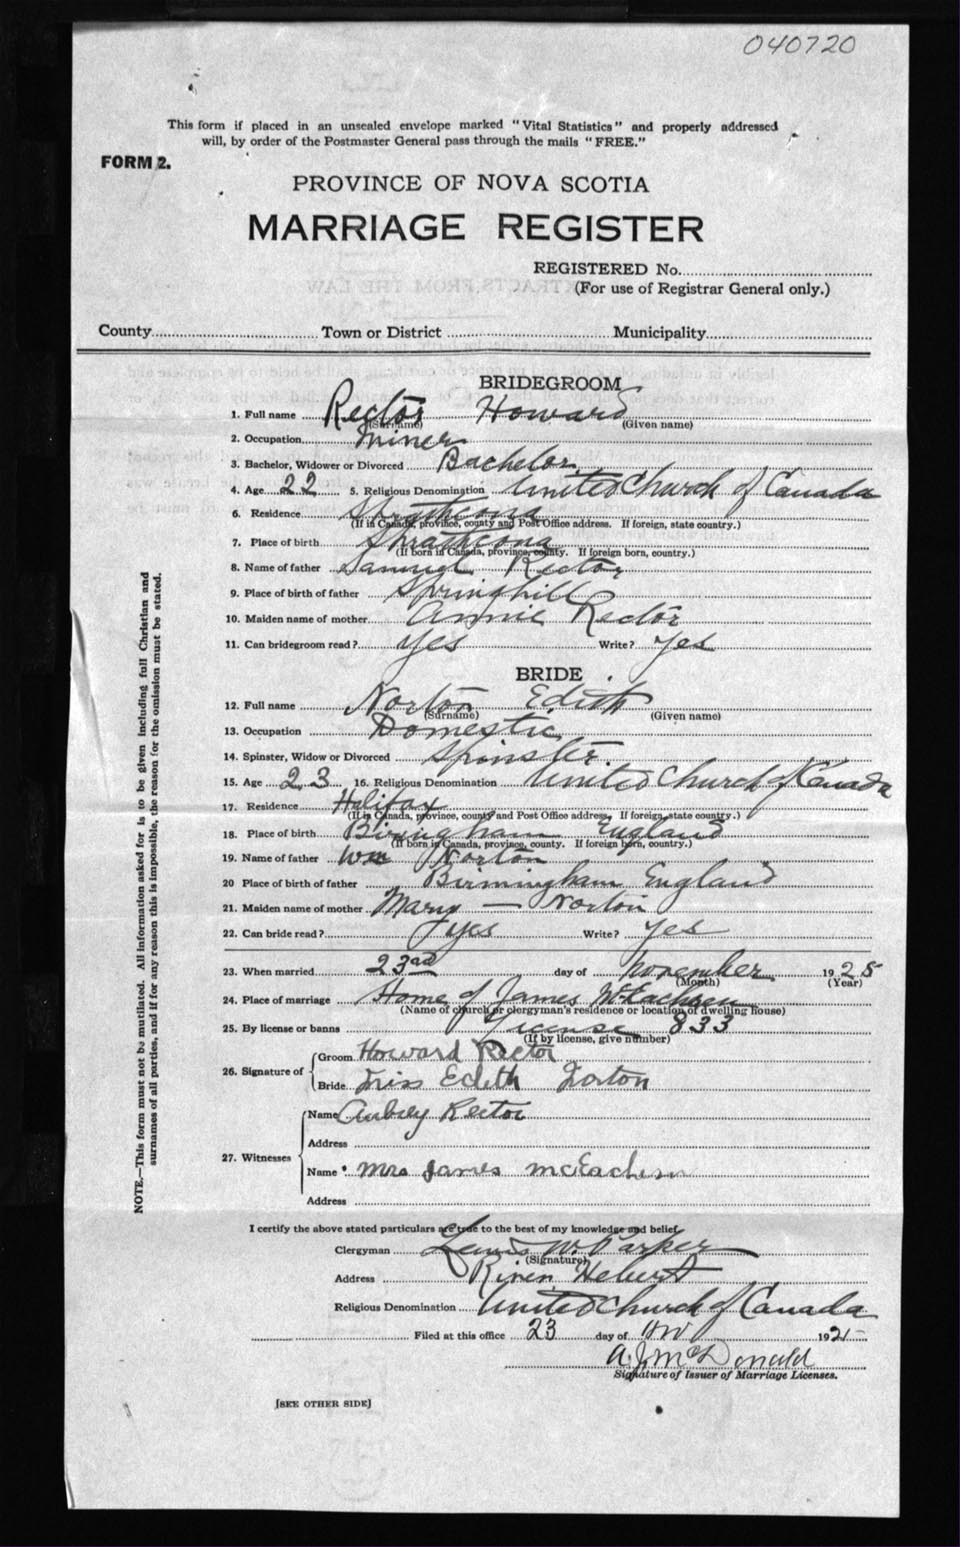 040720
This form if placed in an unsealed envelope marked "Vital Statistics" and properly addressed
will, by order of the Postmaster General pass through the mails "FREE."
FORM 2.
PROVINCE OF NOVA SCOTIA
MARRIAGE REGISTER
REGISTERED No.
(For use of Registrar General only.)
County Town or District Municipality
BRIDEGROOM
1. Full name Rector Howard
(Surname) (Given name)
2. Occupation Miner
3. Bachelor, Widower or Divorced Bachelor
4. Age 22 5. Religious Denomination United Church of Canada
6. Residence Strathcona
(If in Canada, province, county and Post Office address. If foreign, state country.)
7. Place of birth Strathcona
(If born in Canada, province, county. If foreign born, country.)
8. Name of father Samuel Rector
9. Place of birth of father Springhill
10. Maiden name of mother Annie Rector
11. Can bridegroom read? yes Write? yes
BRIDE
12. Full name Norton Edith
(Surname) (Given name)
13. Occupation Domestic
14. Spinster, Widow or Divorced Spinster.
15. Age 23 16. Religious Denomination United Church of Canada
17. Residence Halifax
(If in Canada, province, county and Post Office address. If foreign, state country.)
18. Place of birth Biringham England
(If born in Canada, province, county. If foreign born, country.)
19. Name of father Wm Norton
20 Place of birth of father Birmingham England
21. Maiden name of mother Mary — Norton
22. Can bride read? yes Write? yes
23. When married 23rd day of November 1925
(Month) (Year)
24. Place of marriage Home of James McEachren
(Name of church or clergyman's residence or location of dwelling house)
25. By license or banns License 833
(If by license, give number)
26. Signature of Groom Howard Rector
Bride Miss Edeth Norton
27. Witnesses Name Aubrey Rector
Address
Name Mrs James McEachern
Address
I certify the above stated particulars are true to the best of my knowledge and belief.
Clergyman Lewis W. Parker
(Signature)
Address River Hebert
Religious Denomination United Church of Canada
Filed at this office 23 day of Nov 1925
A. J. McDonald
Signature of Issuer of Marriage Licenses.
[SEE OTHER SIDE]
NOTE.—This form must not be mutilated. All information asked for is to be given including full Christian and
surnames of all parties, and if for any reason this is impossible, the reason for the omission must be stated.